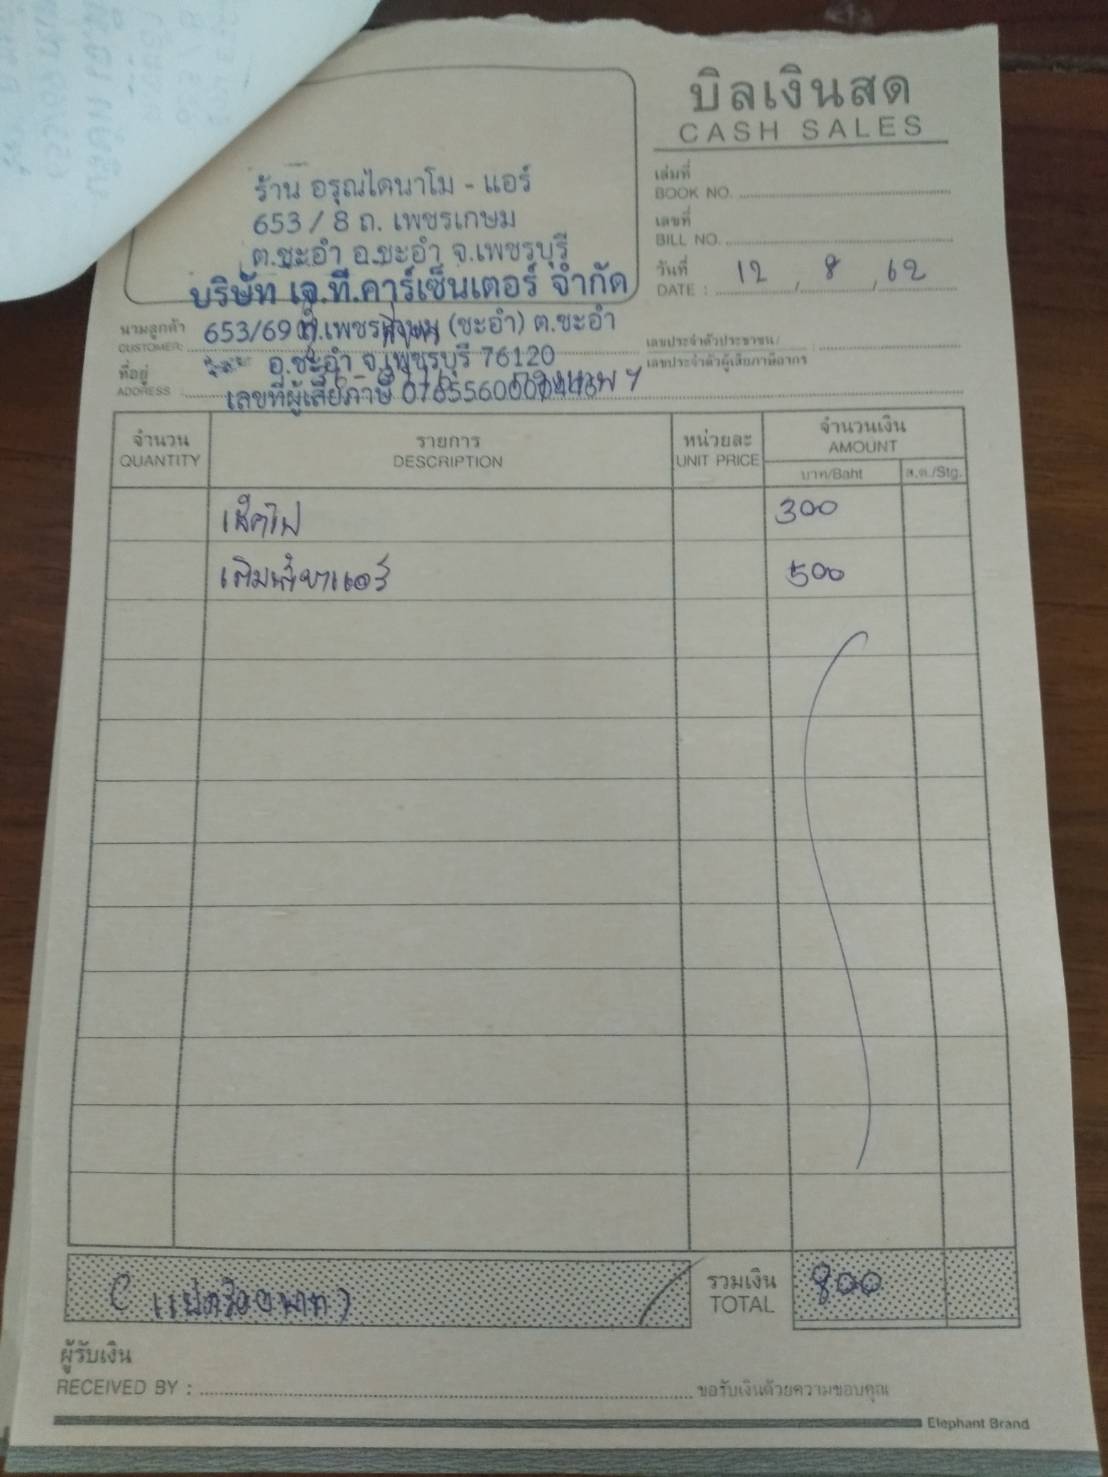 บิลเงินสด
CASH SALES
ร้าน อรุณไดนาโม - แอร์
653 / 8 ถ. เพชรเกษม
ต.ชะอำ อ.ชะอำ จ.เพชรบุรี
เล่มที่
BOOK NO.
เลขที่
BILL NO.
วันที่
DATE : 12 / 8 / 62
บริษัท เจ.ที.คาร์เซ็นเตอร์ จำกัด
นามลูกค้า
CUSTOMER:
653/69 ถ.เพชรเกษม (ชะอำ) ต.ชะอำ
อ.ชะอำ จ.เพชรบุรี 76120
เลขประจำตัวประชาชน/
เลขประจำตัวผู้เสียภาษีอากร :
ที่อยู่
ADDRESS :
เลขที่ผู้เสียภาษี
จำนวน
QUANTITY
รายการ
DESCRIPTION
หน่วยละ
UNIT PRICE
จำนวนเงิน
AMOUNT
บาท/Baht
ส.ต./Stg.
เช็คไฟ 300
เติมน้ำยาแอร์ 500
( แปดร้อยบาท )
รวมเงิน
TOTAL
800
ผู้รับเงิน
RECEIVED BY :
ขอรับเงินด้วยความขอบคุณ
Elephant Brand